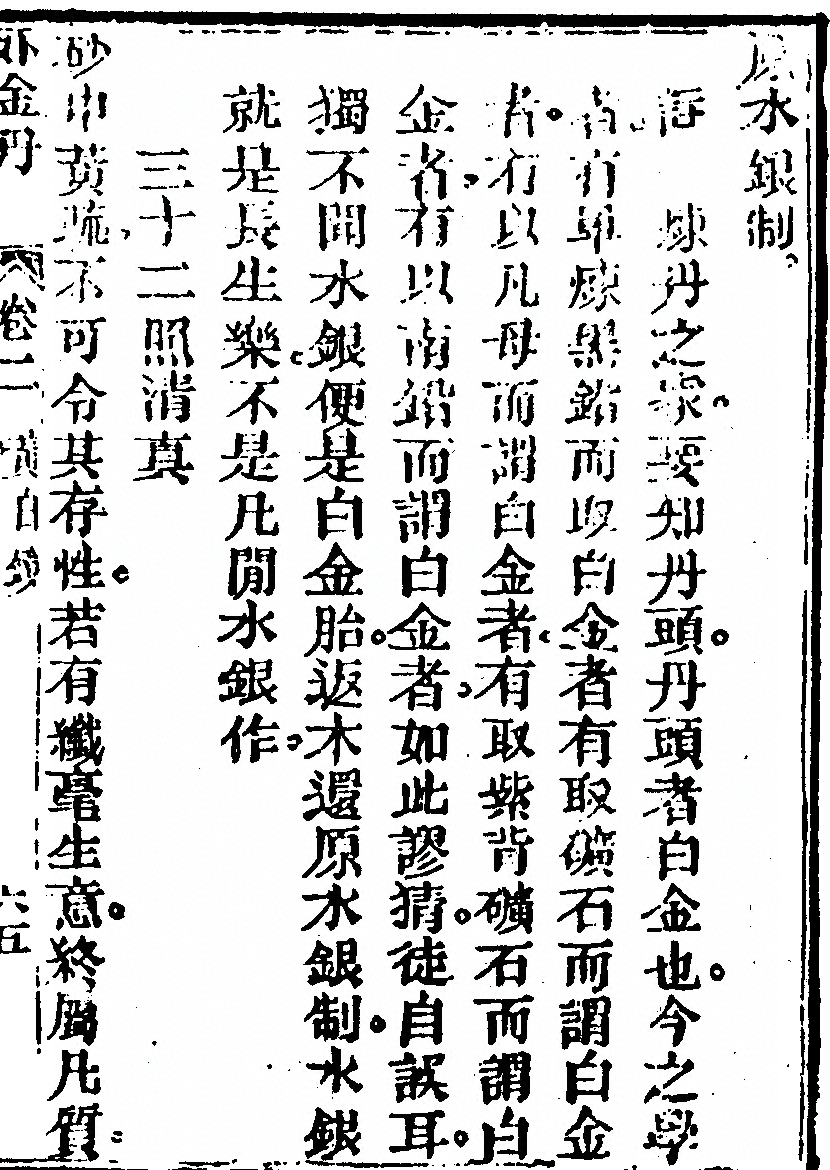 原水銀制
註　煉丹之家要知丹頭丹頭者白金也今之學
者有單煉黑鉛而取白金者有取礦石而謂白金
者有以凡母而謂白金者有取紫背礦石而謂白
金者有以南鉛而謂白金者如此謬猜徒自誤耳
獨不聞水銀便是白金胎返本還原水銀制水銀
就是長生藥不是凡間水銀作
三十二照清真
砂中黃硫不可令其存性若有纖毫生意終屬凡質
外金丹　卷二　六五